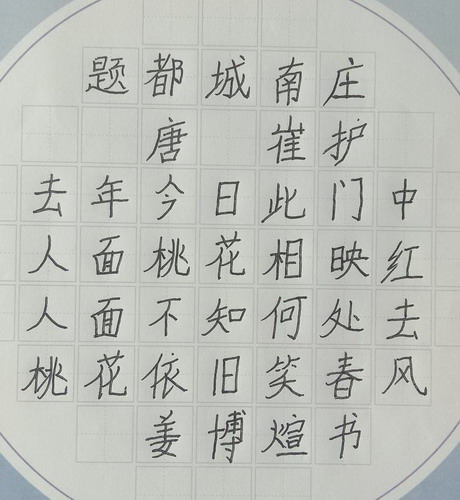 题都城南庄
唐 崔护
去年今日此门中
人面桃花相映红
人面不知何处去
桃花依旧笑春风
姜博煊书